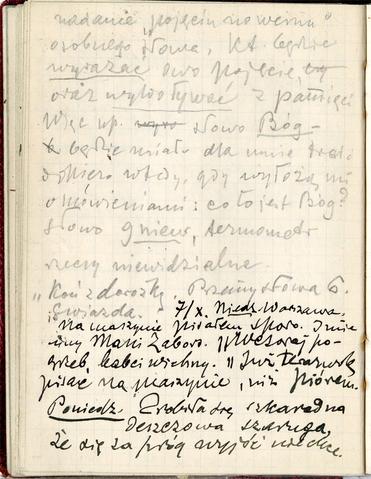 nadanie pojęciu nowemu"
osobnego słowa, kt. będzie
wyrażać owo pojęcie,
oraz wydobywać z pamięci
Więc np. słowo Bóg –
będzie miało dla mnie treść
dopiero wtedy, gdy wyłożą mi
omówieniami: co to jest Bóg?
Słowo gniew, termometr
rzeczy niewidzialne
"Koń z dorożką, Przemysłowa 6.
Gwiazda." 7/X. Niedz. Warszawa.
Na maszynie pisałem sporo. Imie
niny Marii Zabor. Wczoraj po-
grzeb babci wichny. Już
pisać na maszynie, niż piórem.
Poniedz. Zrobiła się szkaradna
deszczowa szaruga,
że się za próg wyjść nie chce.